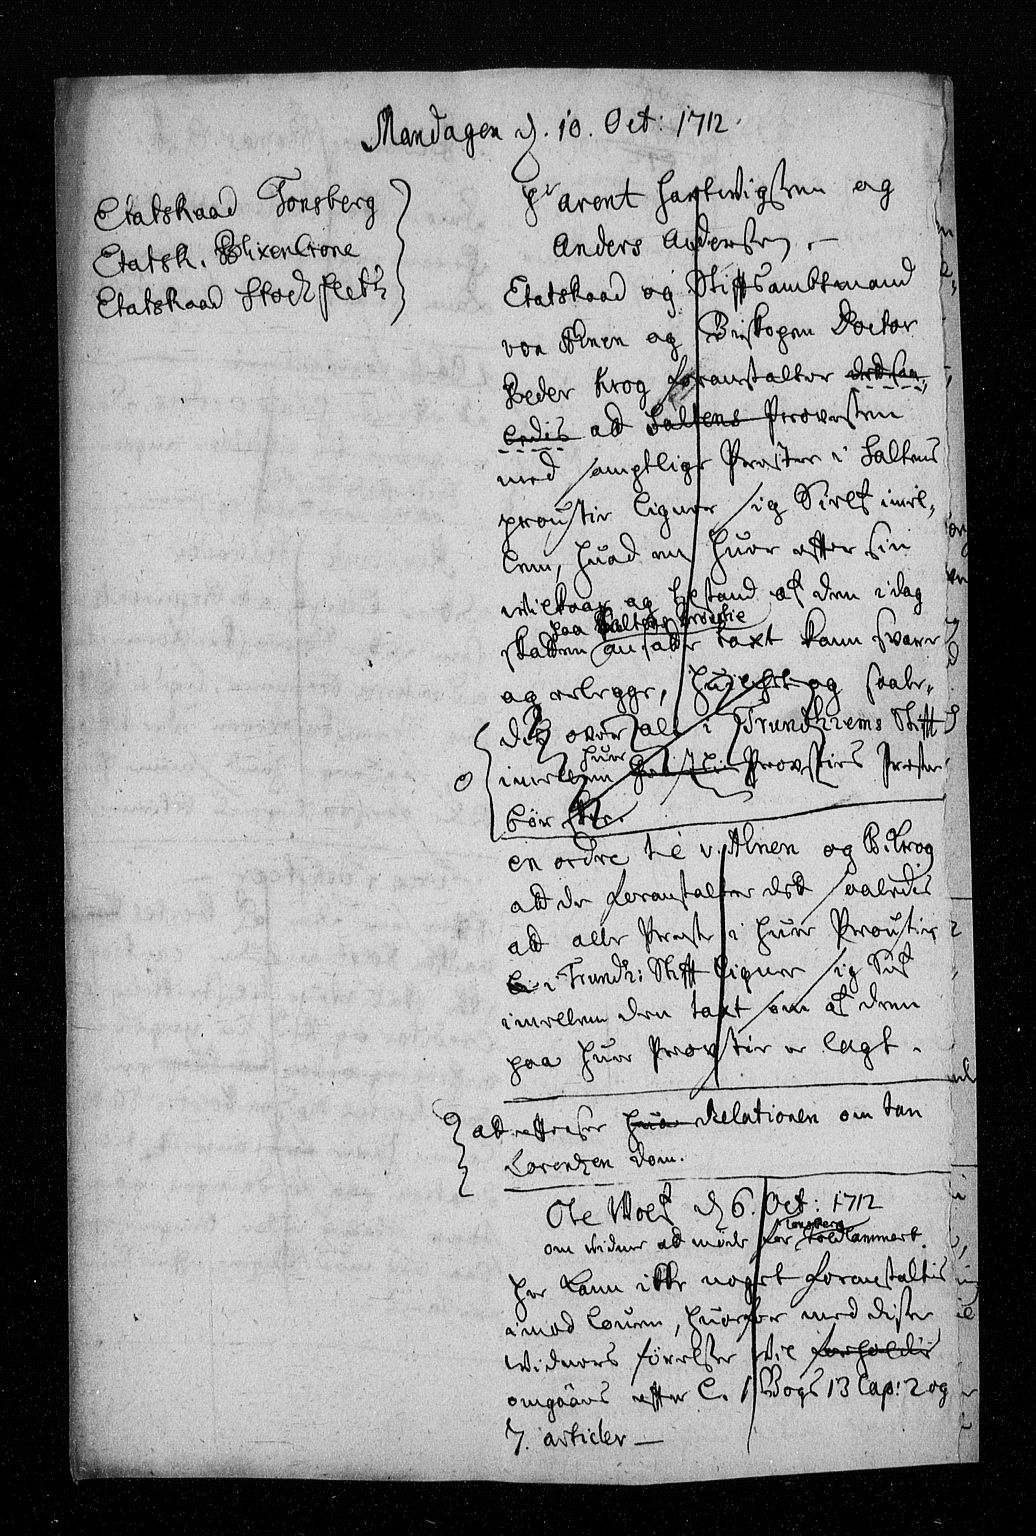 Mandagen d. 10. Oct: 1712.
Etatsraad Tonsberg
Etatsk. Blixencrone
Etatsraad Stockfleth
Hr Arent Hartwigsen og
Anders Andersen, —
Etatsraad og Stiftsambtmand
von Ahnen og Biskopen Doctor
Peder Krog foranstalter det saa„
ledis ad Saltens Provesten
med samptlige Præster i Saltens
proustie ligner sig Self imel„
lem, huad en huer efter sin
wilkaar og tilstand af den idag
paa Saltens Proustie
skatten ansatte taxt kann svare
og erlegge, og saale„
dis over alt i Trundhiems Stift
imellem huer Provsties Præster
bør skee.
en ordre til v. Ahnen og B. Krog
at de foranstalter det saaledis
at alle Præster i huer Proustie
i Trundh: Stift ligner sig Self
imellem den taxt som af dem
paa huer Provstie er lagt.
at efterser Relationen om tan
Lorentzen dom.
Ole Wolf d 6. Oct: 1712
Tonsberg
om widner at møde for Toldkammert.
her kann ikke noget foranstaltis
imod louen, huorfor med disse
widners førelse vil forholdis
omgaaes efter L. 1 Bogs 13 Cap: 2 og
7. articler —